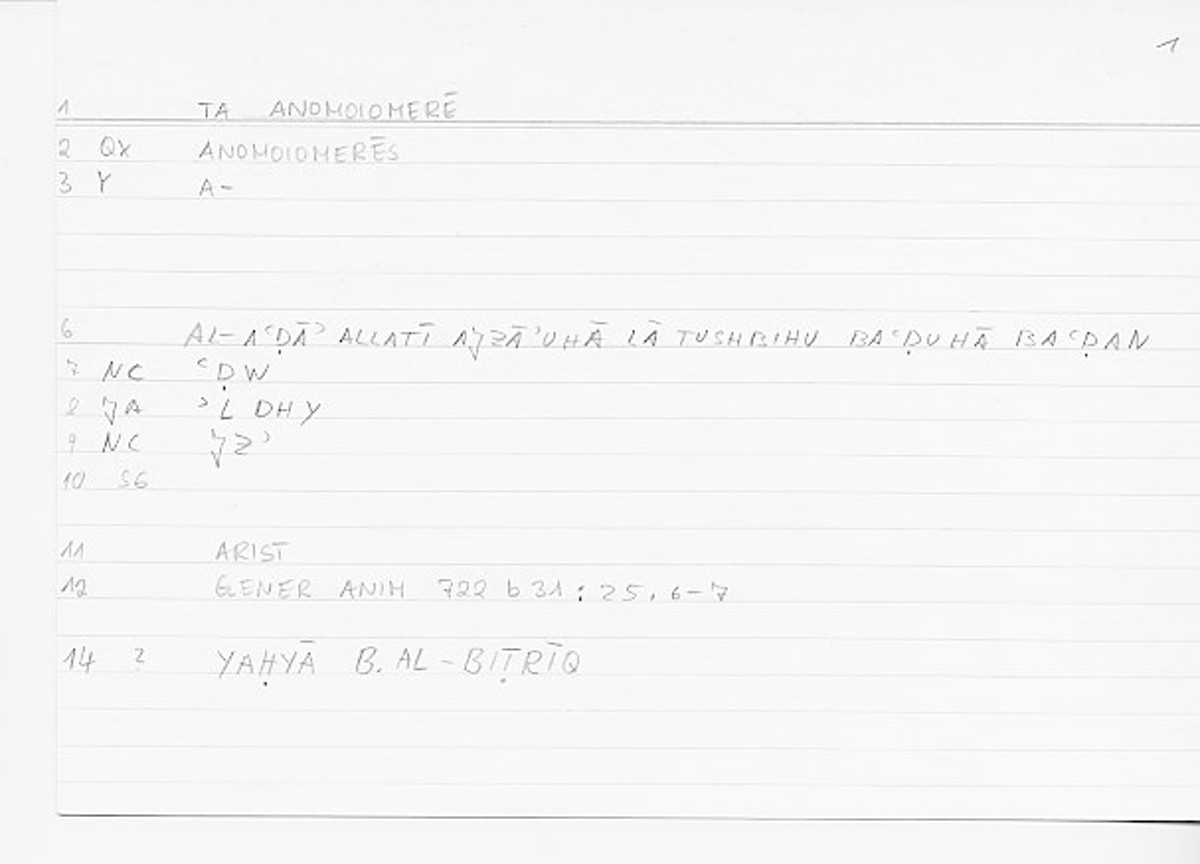 1
1 TA ANOMOIOMERĒ
2 QX ANOMOIOMERĒS
3 Y A-
6 AL-AʿḌĀʾ ALLATĪ AJZĀʾUHĀ LĀ TUSHBIHU BAʿḌUHĀ BAʿḌAN
7 NC ʿḌW
8 JA ʾL DHY
9 NC JZʾ
10 SG
11 ARIST
12 GENER ANIM 722 b 31 : 25, 6-7
14 2 YAḤYĀ B. AL-BIṬRĪQ